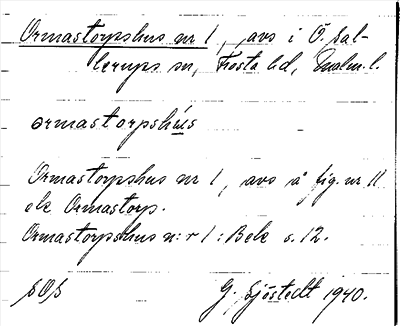 Ormastorpshus nr 1, avs i Ö. Sal-
lerups sn, Frosta hd, Malm. l.
ormastorpshus
Ormastorpshus nr 1, avs å fig. nr 11
ek Ormastorp.
Ormastorpshus n:r 1: Bek s. 12.
SOS G. Sjöstedt 1940.